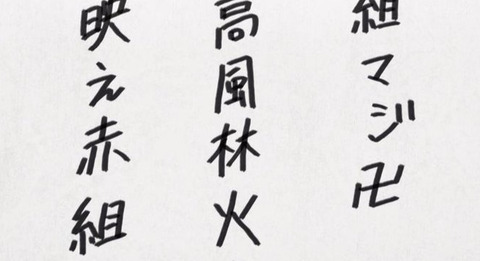 組マジ卍
高風林火
映え赤組